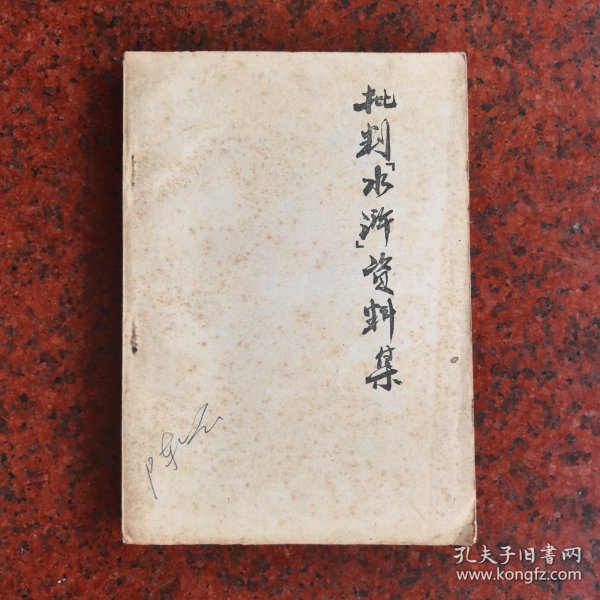 批判「水浒」资料集
孔夫子旧书网
www.kongfz.com